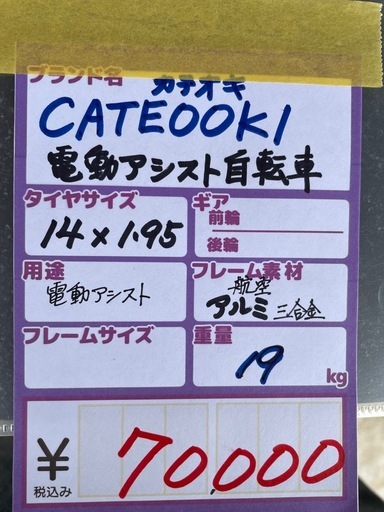 ブランド名
カテオキ
CATEOOKI
電動アシスト自転車
タイヤサイズ
14×1.95
ギア
前輪
後輪
用途
電動アシスト
フレーム素材
航空
アルミ三合金
フレームサイズ
重量
19 kg
¥ 70,000
税込み